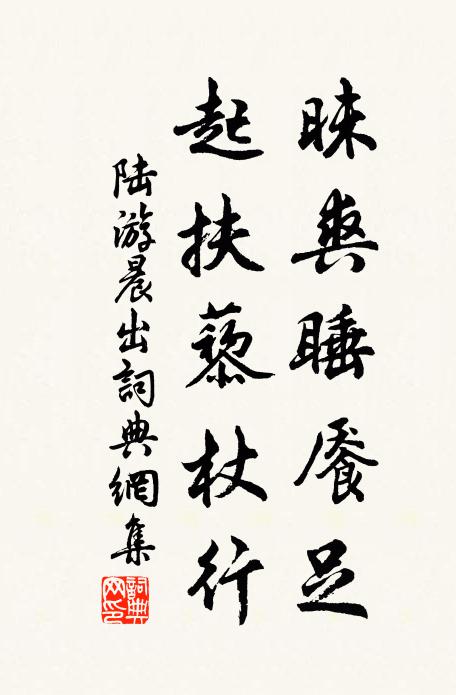 昧爽睡餍足
起扶藜杖行
陆游晨出詞典網集
詞典网印